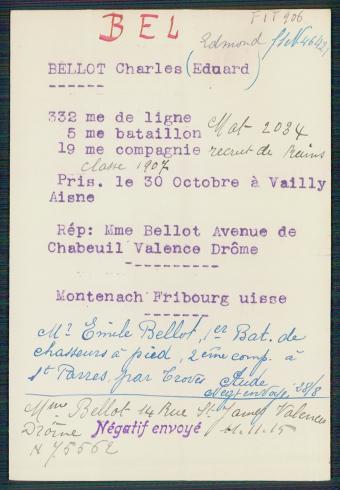 BEL
FIT 906
Edmond
BELLOT Charles (Eduard)
332 me de ligne
5 me bataillon Mat 2034
19 me compagnie recrut de Reims
classe 1907
Pris. le 30 Octobre à Vailly
Aisne
Rép: Mme Bellot Avenue de
Chabeuil Valence Drôme
Montenach Fribourg uisse
Mr Emile Bellot, 1er Bat. de
chasseurs à pied, 2ème comp. à
St Parres, par Troyes Aude
Negt envoyé 28/8
Mme Bellot 14 Rue St James Valence
Drôme Négatif envoyé 11.11.15
N 75562